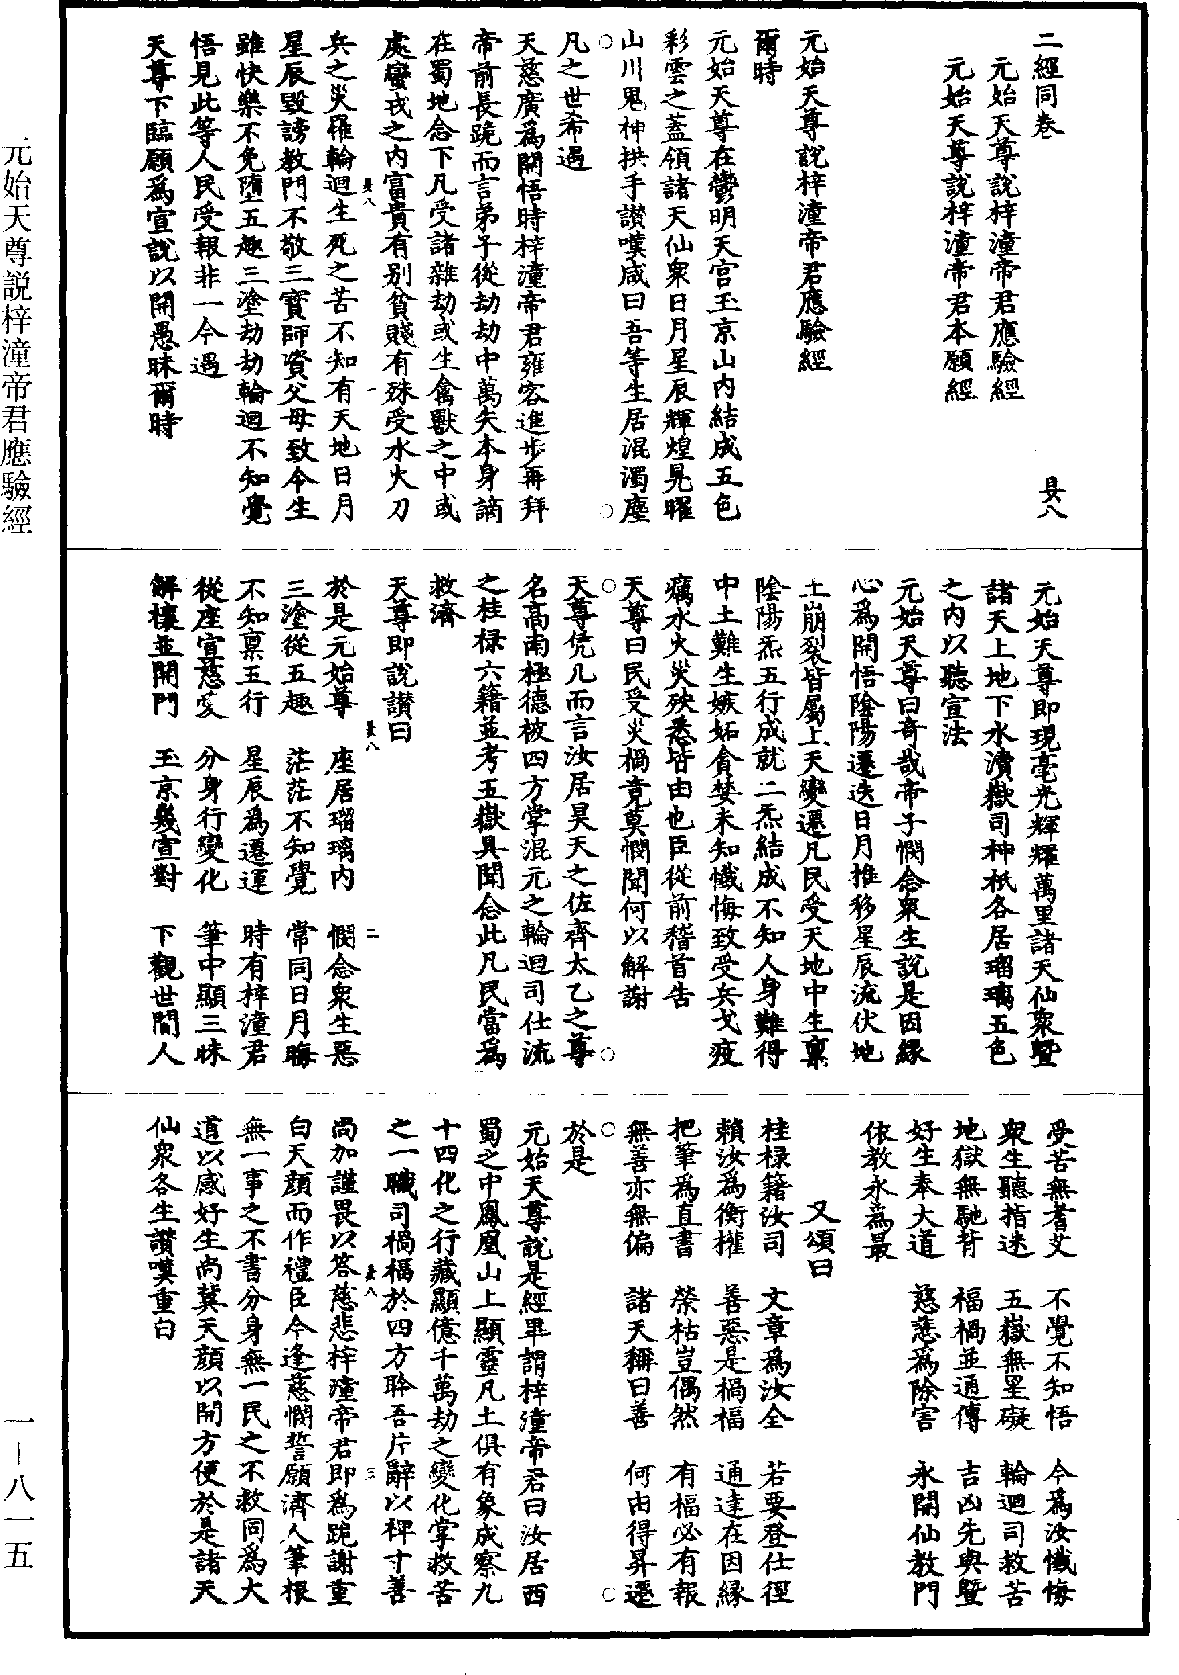 二經同卷　　　　　　　　　　　　昃八
元始天尊說梓潼帝君應驗經
元始天尊說梓潼帝君本願經
元始天尊說梓潼帝君應驗經
爾時
元始天尊在鬱明天宮玉京山內結成五色
彩雲之蓋領諸天仙眾日月星辰輝煌晃曜
山川鬼神拱手讚嘆咸曰吾等生居混濁塵
凡之世希遇
天慈廣為開悟時梓潼帝君雍容進步再拜
帝前長跪而言弟子從劫劫中萬失本身謫
在蜀地念下凡受諸雜劫或生禽獸之中或
處蠻戎之內富貴有別貧賤有殊受水火刀
昃八　一
兵之災羅輪迴生死之苦不知有天地日月
星辰毀謗教門不敬三寶師資父母致今生
雖快樂不免墮五趣三塗劫劫輪迴不知覺
悟見此等人民受報非一今遇
天尊下臨願為宣說以開愚昧爾時
元始天尊即現毫光輝耀萬里諸天仙眾暨
諸天上地下水瀆嶽司神祇各居瑠璃五色
之內以聽宣法
元始天尊曰奇哉帝子憫念眾生說是因緣
心為開悟陰陽遷迭日月推移星辰流伏地
土崩裂皆屬上天變遷凡民受天地中生稟
陰陽炁五行成就二炁結成不知人身難得
中土難生嫉妬貪婪未知懺悔致受兵戈疫
癘水火災殃悉皆由也臣從前稽首告
天尊曰民受災禍竟莫憫聞何以解謝
天尊凭几而言汝居昊天之佐齊太乙之尊
名高南極德被四方掌混元之輪迴司仕流
之桂祿六籍並考五嶽具聞念此凡民當為
救濟
天尊即說讚曰
昃八　二
於是元始尊　座居瑠璃內　憫念眾生惡
三塗從五趣　茫茫不知覺　常同日月晦
不知稟五行　星辰為遷運　時有梓潼君
從座宣慈愛　分身行變化　筆中顯三昧
解禳並開門　玉京幾宣對　下觀世間人
受苦無耆艾　不覺不知悟　今為汝懺悔
眾生聽指迷　五嶽無罣礙　輪迴司救苦
地獄無馳背　福禍並通傳　吉凶先與暨
好生奉大道　慈悲為除害　永開仙教門
依教永為最
又頌曰
桂祿籍汝司　文章為汝全　若要登仕徑
賴汝為衡權　善惡是禍福　通達在因緣
把筆為直書　榮枯豈偶然　有福必有報
無善亦無偏　諸天稱曰善　何由得昇遷
於是
元始天尊說是經畢謂梓潼帝君曰汝居西
蜀之中鳳凰山上顯靈凡土俱有象成察九
十四化之行藏顯億千萬劫之變化掌救苦
之一職司禍福於四方聆吾片辭以稗寸善
昃八　三
尚加謹畏以答慈悲梓潼帝君即為跪謝重
白天顏而作禮臣今逢慈憫誓願濟人筆根
無一事之不書分身無一民之不救同為大
道以感好生尚冀天顏以開方便於是諸天
仙眾各生讚嘆重白
元始天尊說梓潼帝君應驗經
一—八一五